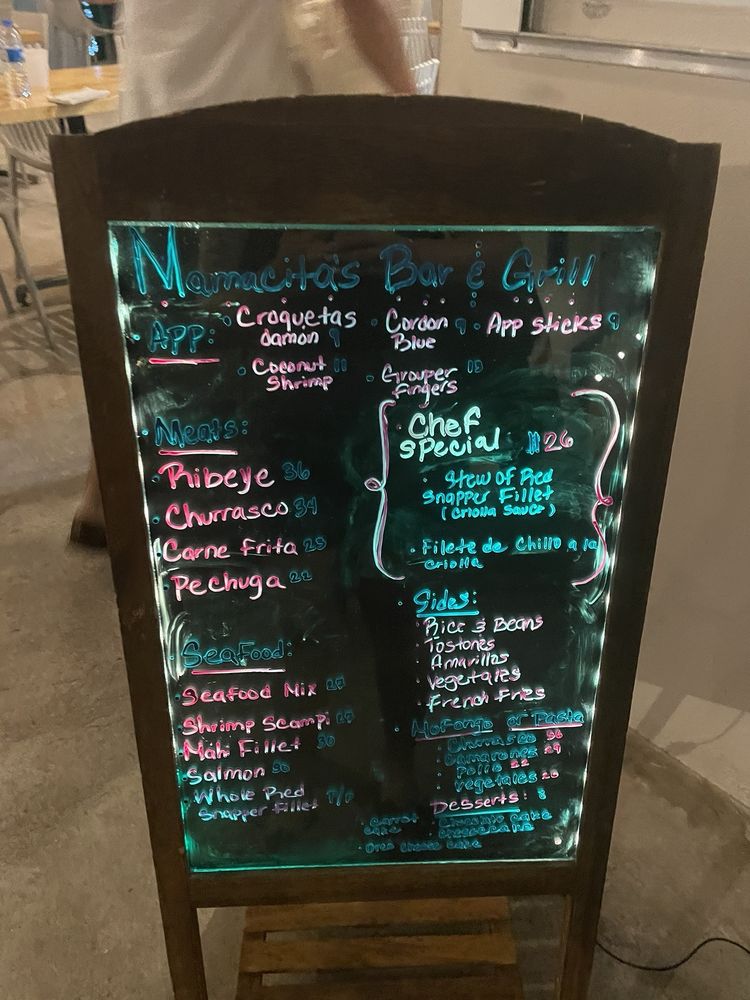 Mamacita's Bar & Grill
App:
Croquetas
damon 9
Cordon 9
Blue
App sticks 9
Coconut 11
Shrimp
Grouper
Fingers
Meats:
Ribeye 36
Churrasco 34
Carne Frita 25
Pechuga 22
Chef
Special $26
Stew of Red
Snapper Fillet
(Criolla Sauce)
Filete de Chillo a la
criolla
Sides:
Rice & Beans
Tostones
Amarillos
Vegetales
French Fries
Seafood:
Seafood Mix
Shrimp Scampi 27
Mahi Fillet 30
Salmon 30
Whole Red
Snapper Fillet
Mofongo or Pasta
Churrasco 36
Camarones 29
Pollo 22
Vegetales 20
Desserts: 8
Carrot
Cake
Chocolate Cake
Cheesecake
Oreo Cheese Cake